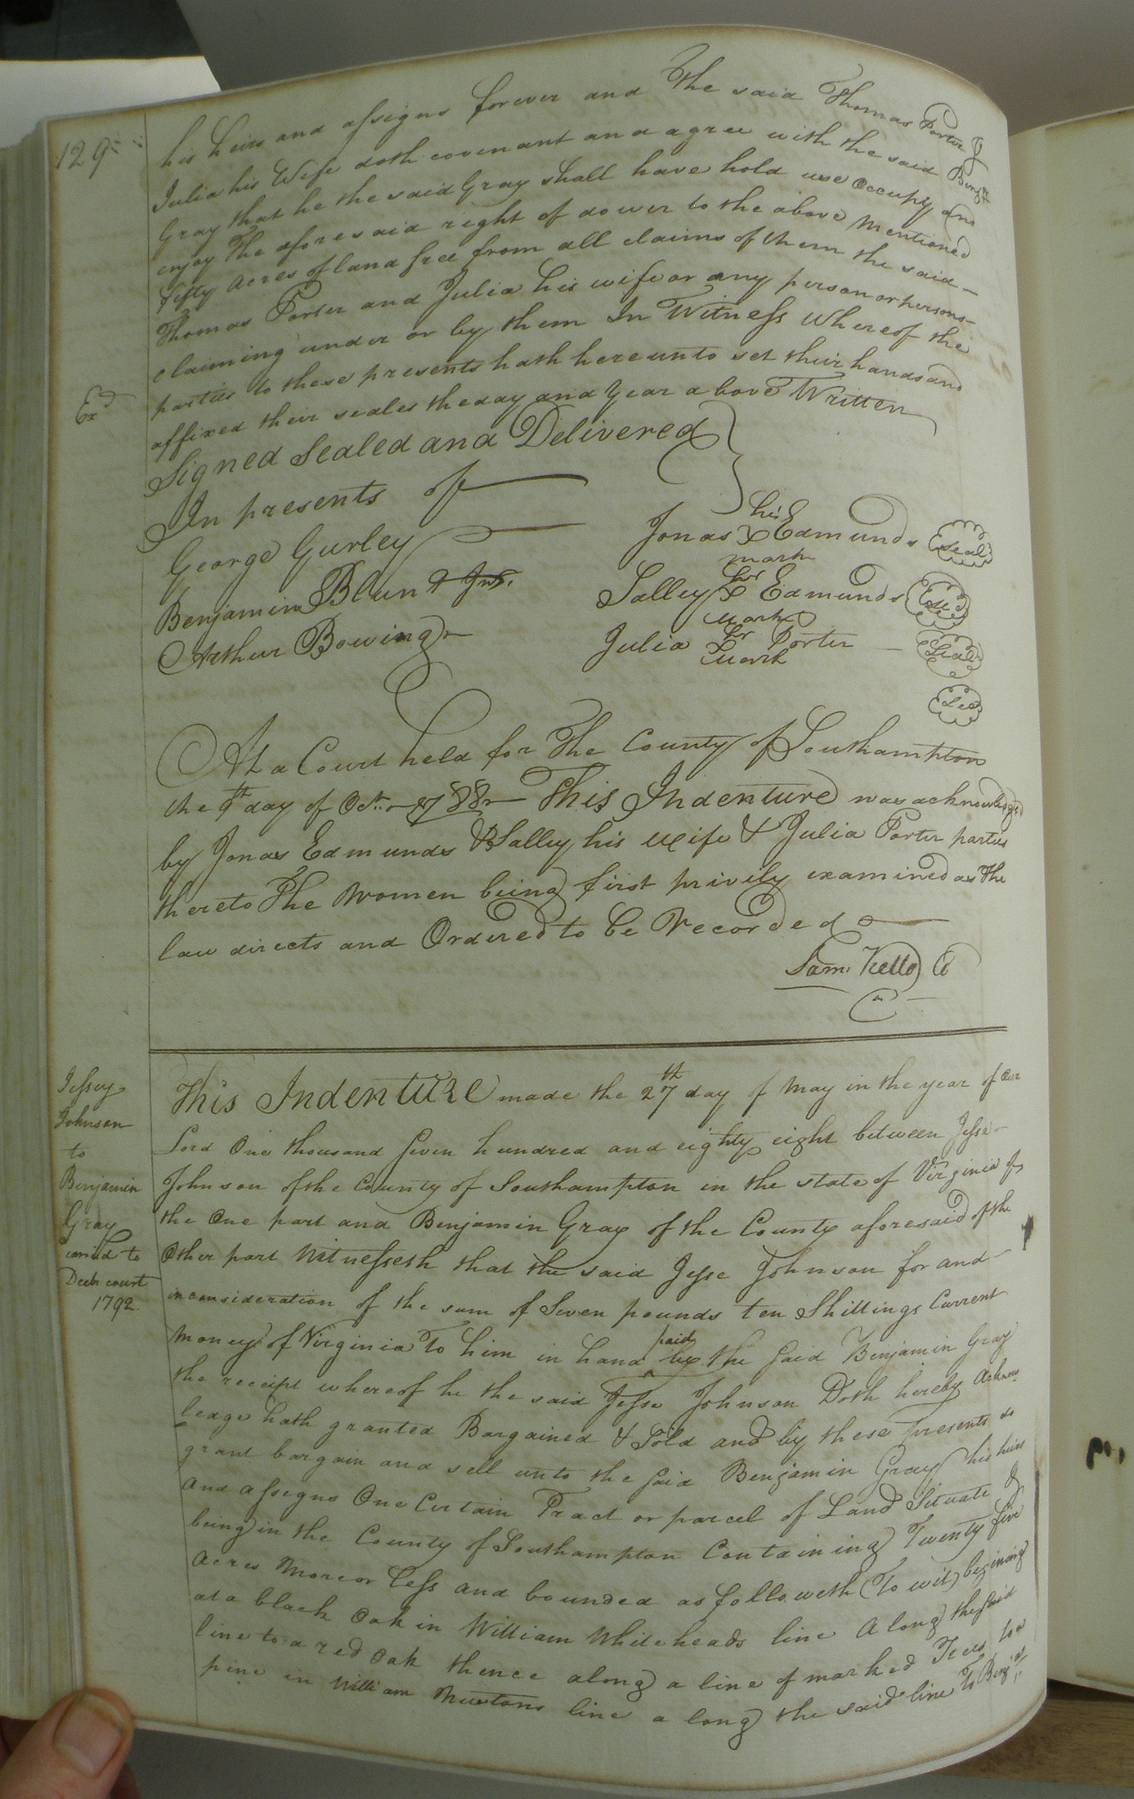 129
his heirs and assigns forever and The said Thomas Porter &
Julia his Wife doth covenant and agree with the said Benjn
Gray that he the said Gray shall have hold use Occupy and
enjoy The aforesaid right of dower to the above Mentioned
fifty acres of land free from all claims of them the said
Thomas Porter and Julia his wife or any person or persons
claiming under or by them In Witness Whereof the
parties to these presents hath hereunto set their hands and
Exd
affixed their seales the day and Year above Written
Signed Sealed and Delivered
In presents of
George Gurley
Benjamin Blunt Junr.
Arthur Bowing
Jonas his X mark Edmunds Seal
Salley her X mark Edmunds Seal
Julia her X mark Porter Seal
Seal
At a Court held for The County of Southampton
the 9th day of Octr. 1788 This Indenture was acknowledged
by Jonas Edmunds & Salley his Wife & Julia Porter parties
thereto The Women being first privily examined as The
law directs and Ordered to be Recorded
Sam. Kello
Jessey
Johnson
to
Benjamin
Gray
to
Decb court
1792.
This Indenture made the 27th day of May in the year of Our
Lord One thousand Seven hundred and eighty eight between Jesse
Johnson of the County of Southampton in the state of Virginia of
the One part and Benjamin Gray of the County aforesaid of the
Other part Witnesseth that the said Jesse Johnson for and
in consideration of the sum of Seven pounds ten Shillings Current
Money of Virginia To him in hand paid by the said Benjamin Gray
the receipt whereof he the said Jesse Johnson Doth hereby Acknow
ledge hath granted Bargained & Sold and by these presents do
grant bargain and sell unto the said Benjamin Gray his heirs
and assigns One Certain Tract or parcel of Land Situate &
being in the County of Southampton Containing Twenty five
Acres More or Less and bounded as followeth (To wit) begining
at a black Oak in William Whiteheads line Along the said
line to a red Oak thence along a line of marked Trees to a
pine in William Newtons line along the said line To Benja